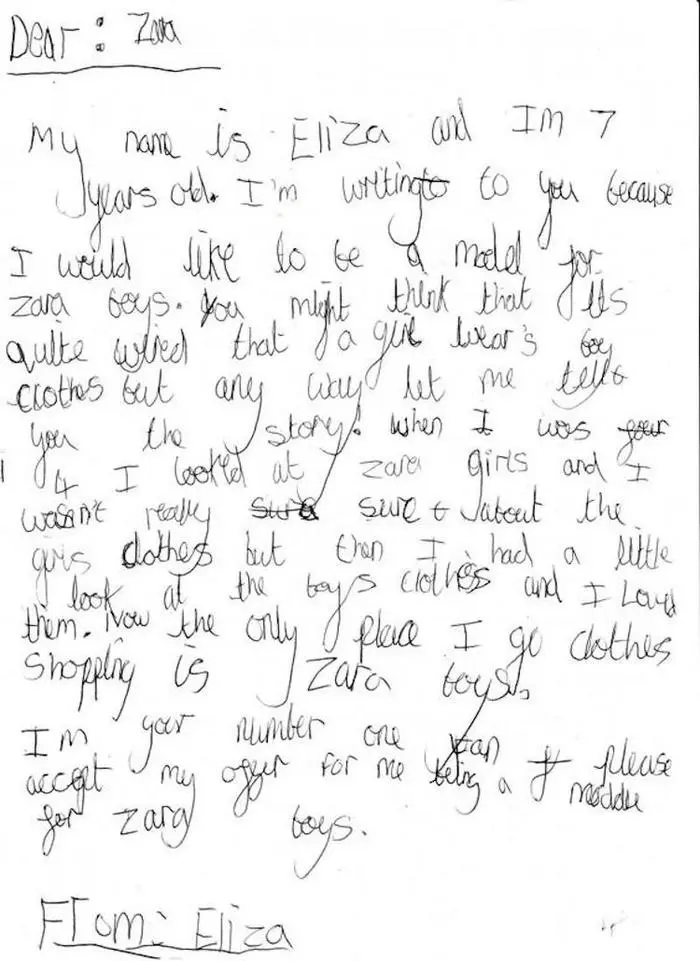 Dear: Zara
My name is Eliza and Im 7
years old. I'm writing to you because
I would like to be a model for
Zara boys. You might think that its
quite wried that a girl wear's boy
clothes but any way let me tell
you the story! When I was
4 I looked at Zara girls and I
wasn't really sure about the
girls clothes but then I had a little
look at the boys clothes and I Loved
them. Now the only place I go clothes
shopping is Zara boys.
I'm your number one fan please
accept my offer for me being a moddle
for Zara boys.
From: Eliza